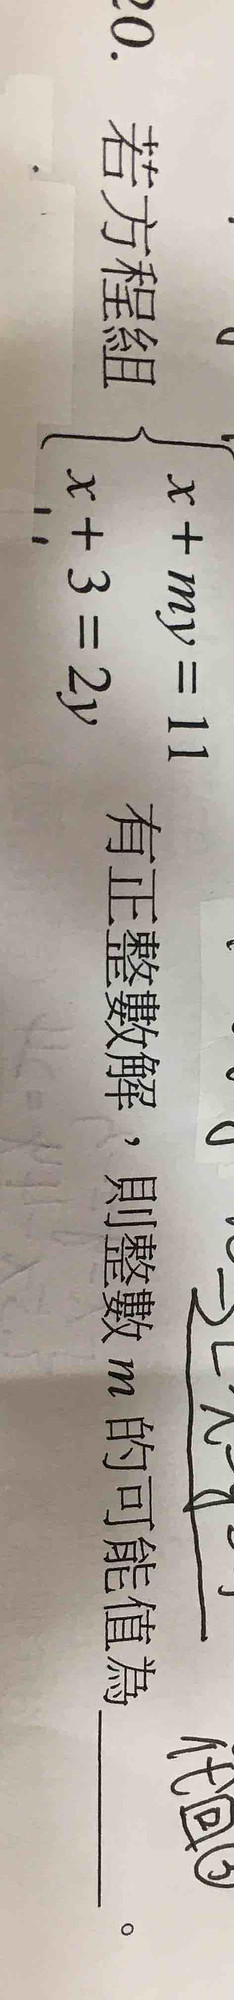 20. 若方程組 { x + my = 11
x + 3 = 2y 有正整數解，則整數 m 的可能值為______。
代回③